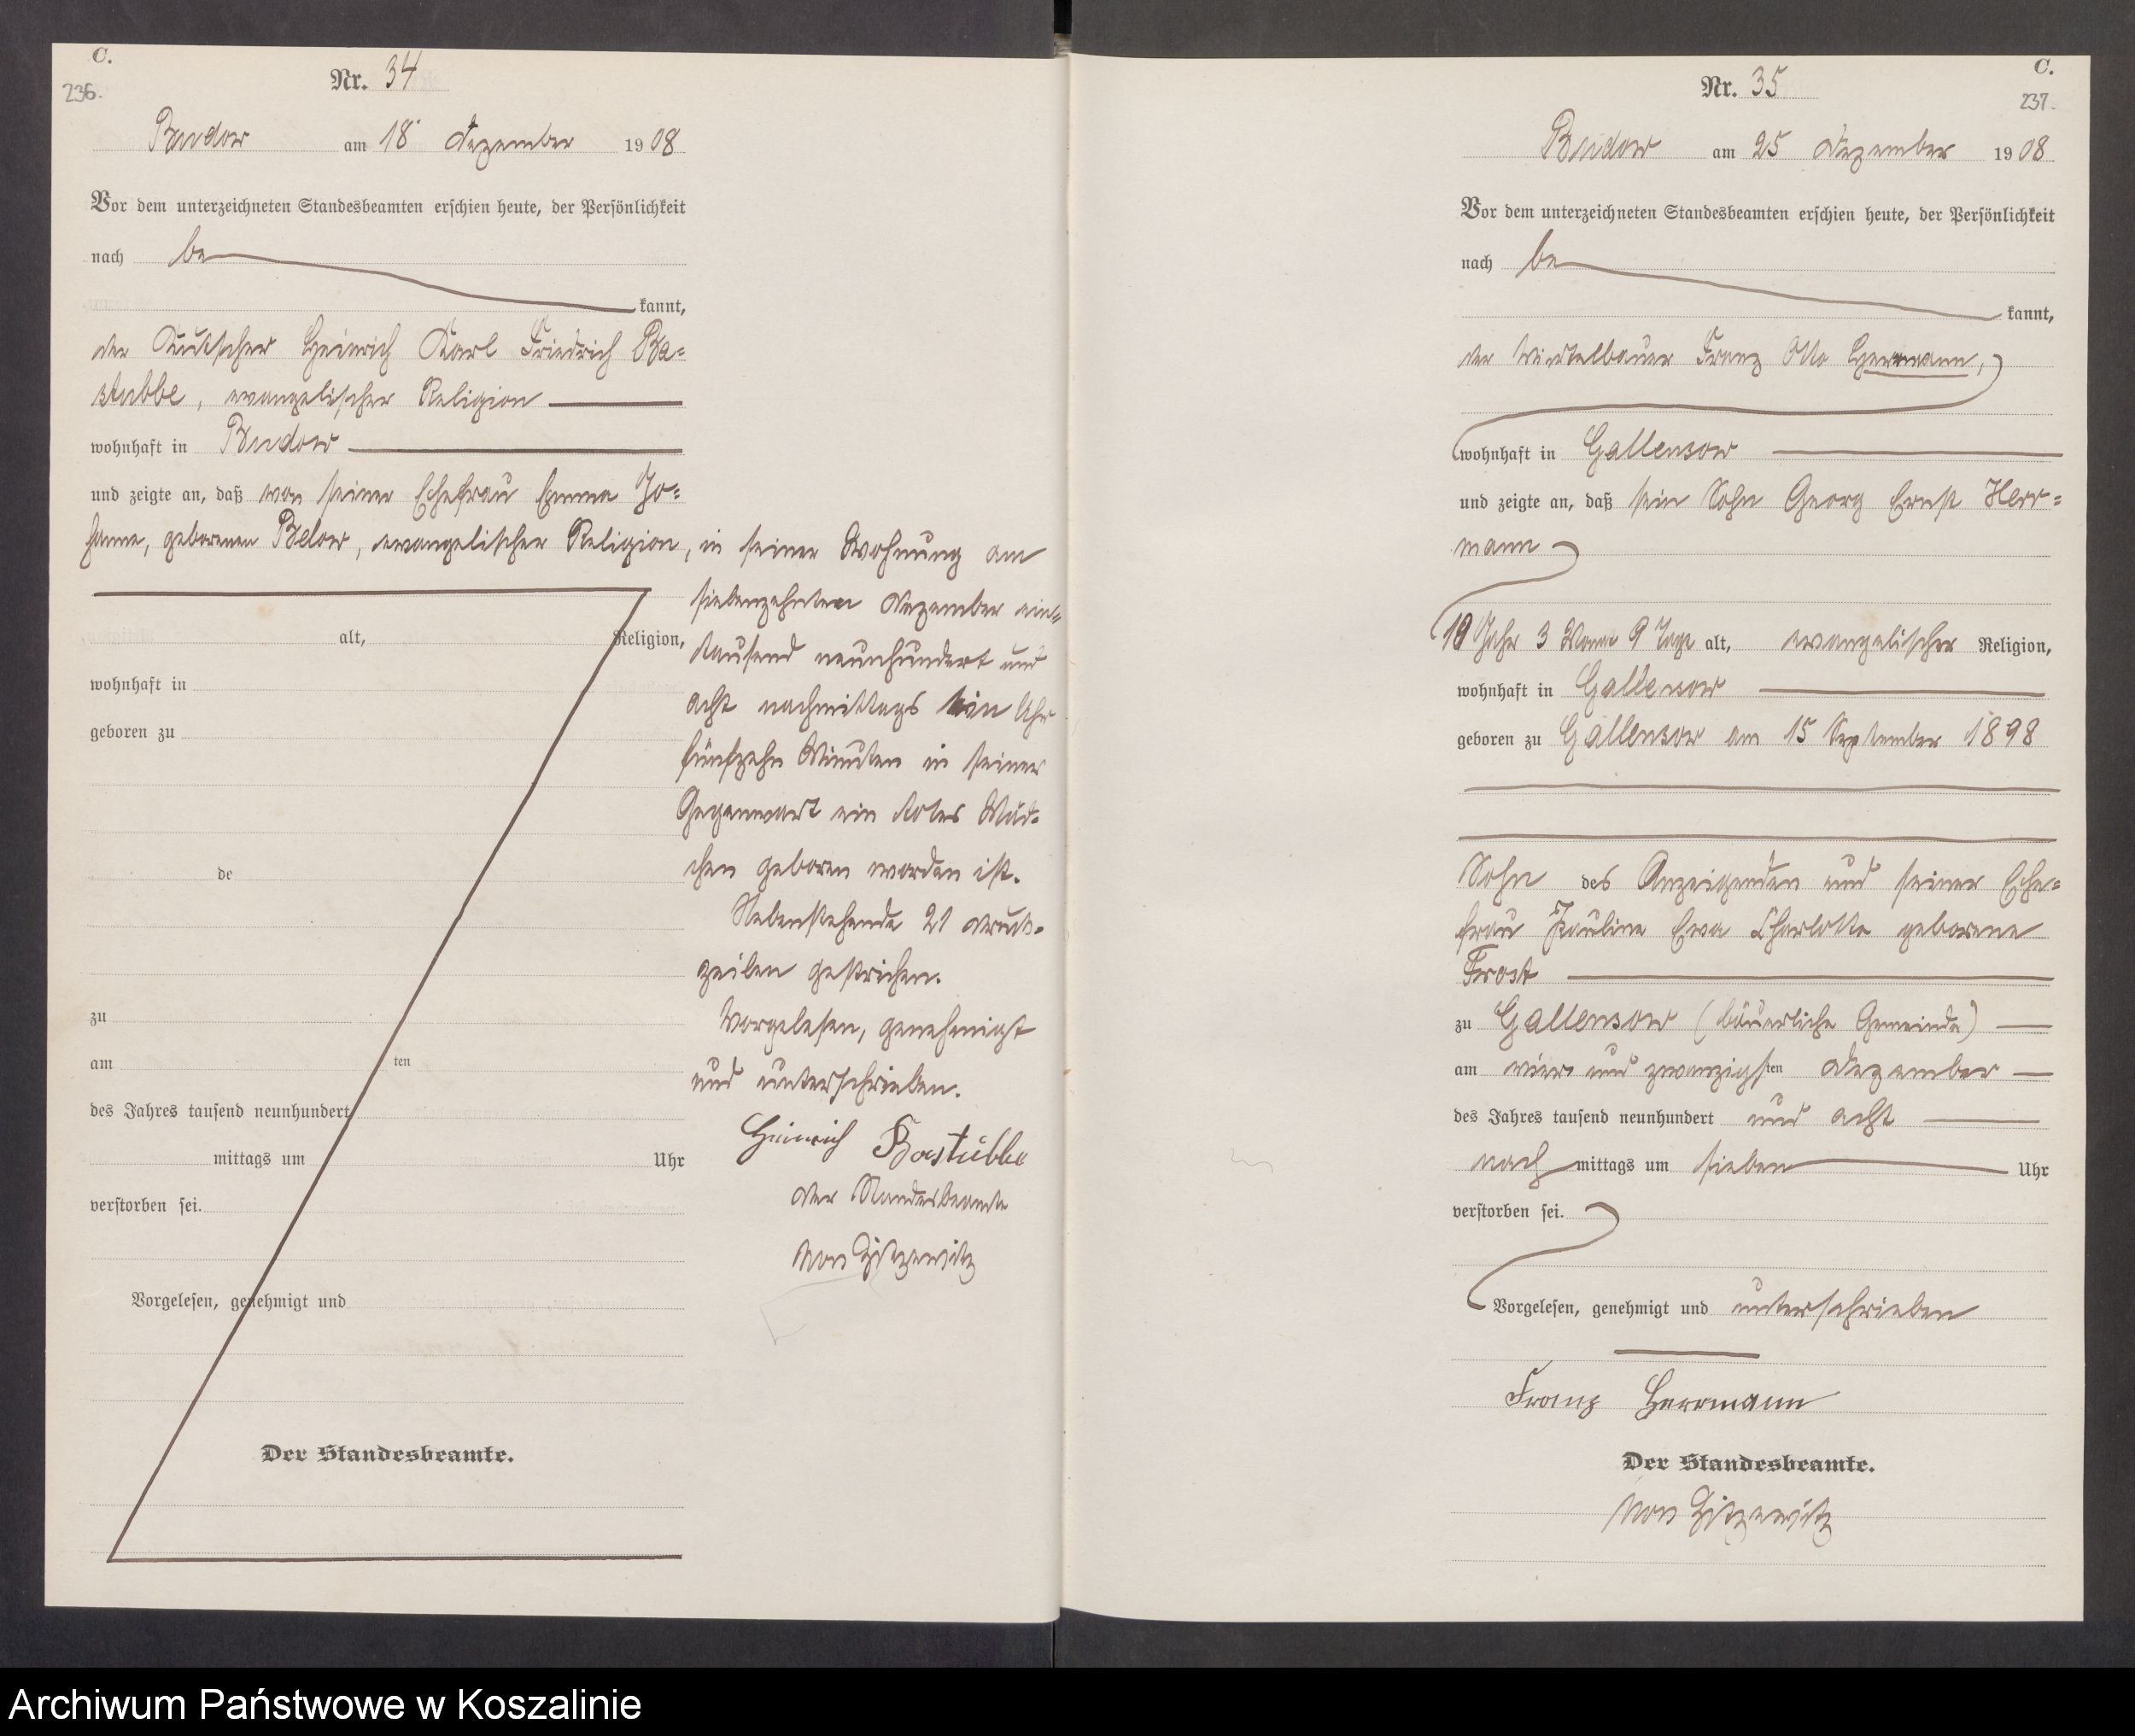 C.
236.
Nr. 34
Budow am 18 Dezember 1908
Vor dem unterzeichneten Standesbeamten erschien heute, der Persönlichkeit
nach be
kannt,
der Kutscher Heinrich Karl Friedrich Ba=
stubbe, evangelischer Religion
wohnhaft in Budow
und zeigte an, daß von seiner Ehefrau Emma Jo=
hanne, geborenen Below, evangelischer Religion, in seiner Wohnung am
siebenzehnten Dezember ein=
tausend neunhundert und
acht nachmittags ein Uhr
fünfzehn Minuten in seiner
Gegenwart ein totes Mäd=
chen geboren worden ist.
Nebenstehende 21 Druck=
zeilen gestrichen.
Vorgelesen, genehmigt
und unterschrieben.
Heinrich Bastubbe
Der Standesbeamte
von Zitzewitz
alt, Religion,
wohnhaft in
geboren zu
de
zu
am ten
des Jahres tausend neunhundert
mittags um Uhr
verstorben sei.
Vorgelesen, genehmigt und
Der Standesbeamte.
C.
237.
Nr. 35
Budow am 25 Dezember 1908
Vor dem unterzeichneten Standesbeamten erschien heute, der Persönlichkeit
nach be
kannt,
der Viertelbauer Franz Otto Herrmann,
wohnhaft in Gallensow
und zeigte an, daß sein Sohn Georg Ernst Herr=
mann
10 Jahr 3 Mona 9 Tage alt, evangelischer Religion,
wohnhaft in Gallensow
geboren zu Gallensow am 15 September 1898
Sohn des Anzeigenden und seiner Ehe=
frau Pauline Ewa Charlotte geborene
Frost
zu Gallensow (bäuerliche Gemeinde)
am vier und zwanzigsten Dezember
des Jahres tausend neunhundert und acht
nach mittags um sieben Uhr
verstorben sei.
Vorgelesen, genehmigt und unterschrieben
Franz Herrmann
Der Standesbeamte.
von Zitzewitz
Archiwum Państwowe w Koszalinie